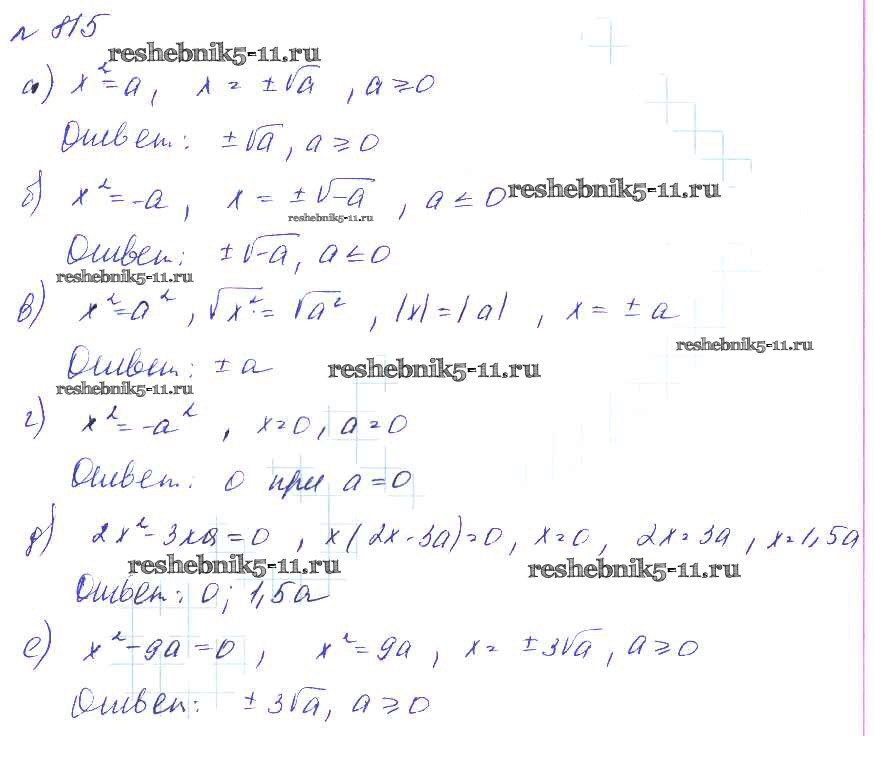 № 815
reshebnik5-11.ru
а) x² = a, x = ±√a, a ≥ 0
Ответ: ±√a, a ≥ 0
б) x² = -a, x = ±√-a, a ≤ 0 reshebnik5-11.ru
reshebnik5-11.ru
Ответ: ±√-a, a ≤ 0
reshebnik5-11.ru
в) x² = a², √x² = √a², |x| = |a|, x = ±a
reshebnik5-11.ru
Ответ: ±a reshebnik5-11.ru
reshebnik5-11.ru
г) x² = -a², x = 0, a = 0
Ответ: 0 при a = 0
д) 2x² - 3xa = 0, x(2x - 3a) = 0, x = 0, 2x = 3a, x = 1,5a
reshebnik5-11.ru reshebnik5-11.ru
Ответ: 0; 1,5a
е) x² - 9a = 0, x² = 9a, x = ±3√a, a ≥ 0
Ответ: ±3√a, a ≥ 0